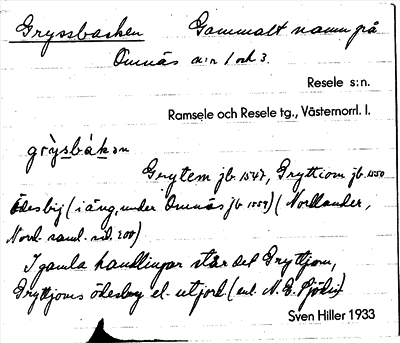 Gryssbacken Gammalt namn på
Omnäs a:n 1 och 3.
Resele s:n.
Ramsele och Resele tg., Västernorrl. l.
gry̆sbák ən
Grytem jb. 1547, Gryttiom jb. 1550
ödesbij (i äng, under Omnäs jb 1559) (Nordlander,
Norrl. saml. sid. 200)
I gamla handlingar står det Gryttjom,
Gryttjoms ödesby el. utjord (enl. N. E. Sjödin)
Sven Hiller 1933